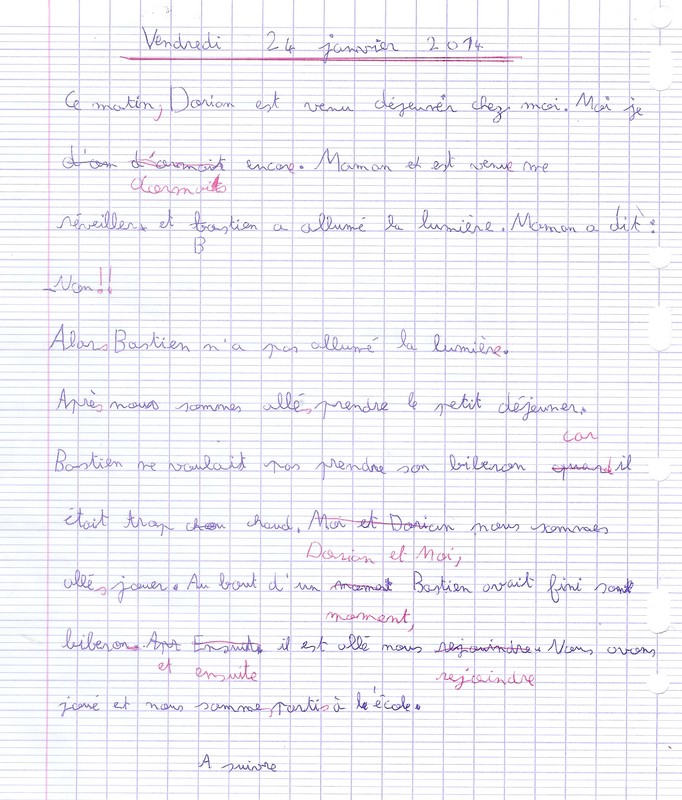 Vendredi 24 janvier 2014
Ce matin, Dorian est venu déjeuner chez moi. Moi je
d'om d'éormait encore. Maman et est venue me
dormais
réveiller et bastien a allumé la lumière. Maman a dit :
B
_Non!!
Alors Bastien n'a pas allumé la lumière.
Après nous sommes allés prendre le petit déjeuner.
car
Bastien ne voulait pas prendre son biberon quand il
était trop chou chaud. Moi et Dorian nous sommes
Dorian et Moi,
allés jouer. Au bout d'un moment Bastien avait fini son
moment,
biberon. Apr Ensuite il est allé nous rejouindre. Nous avons
et ensuite rejoindre
joué et nous sommes partis à l'école.
A suivre